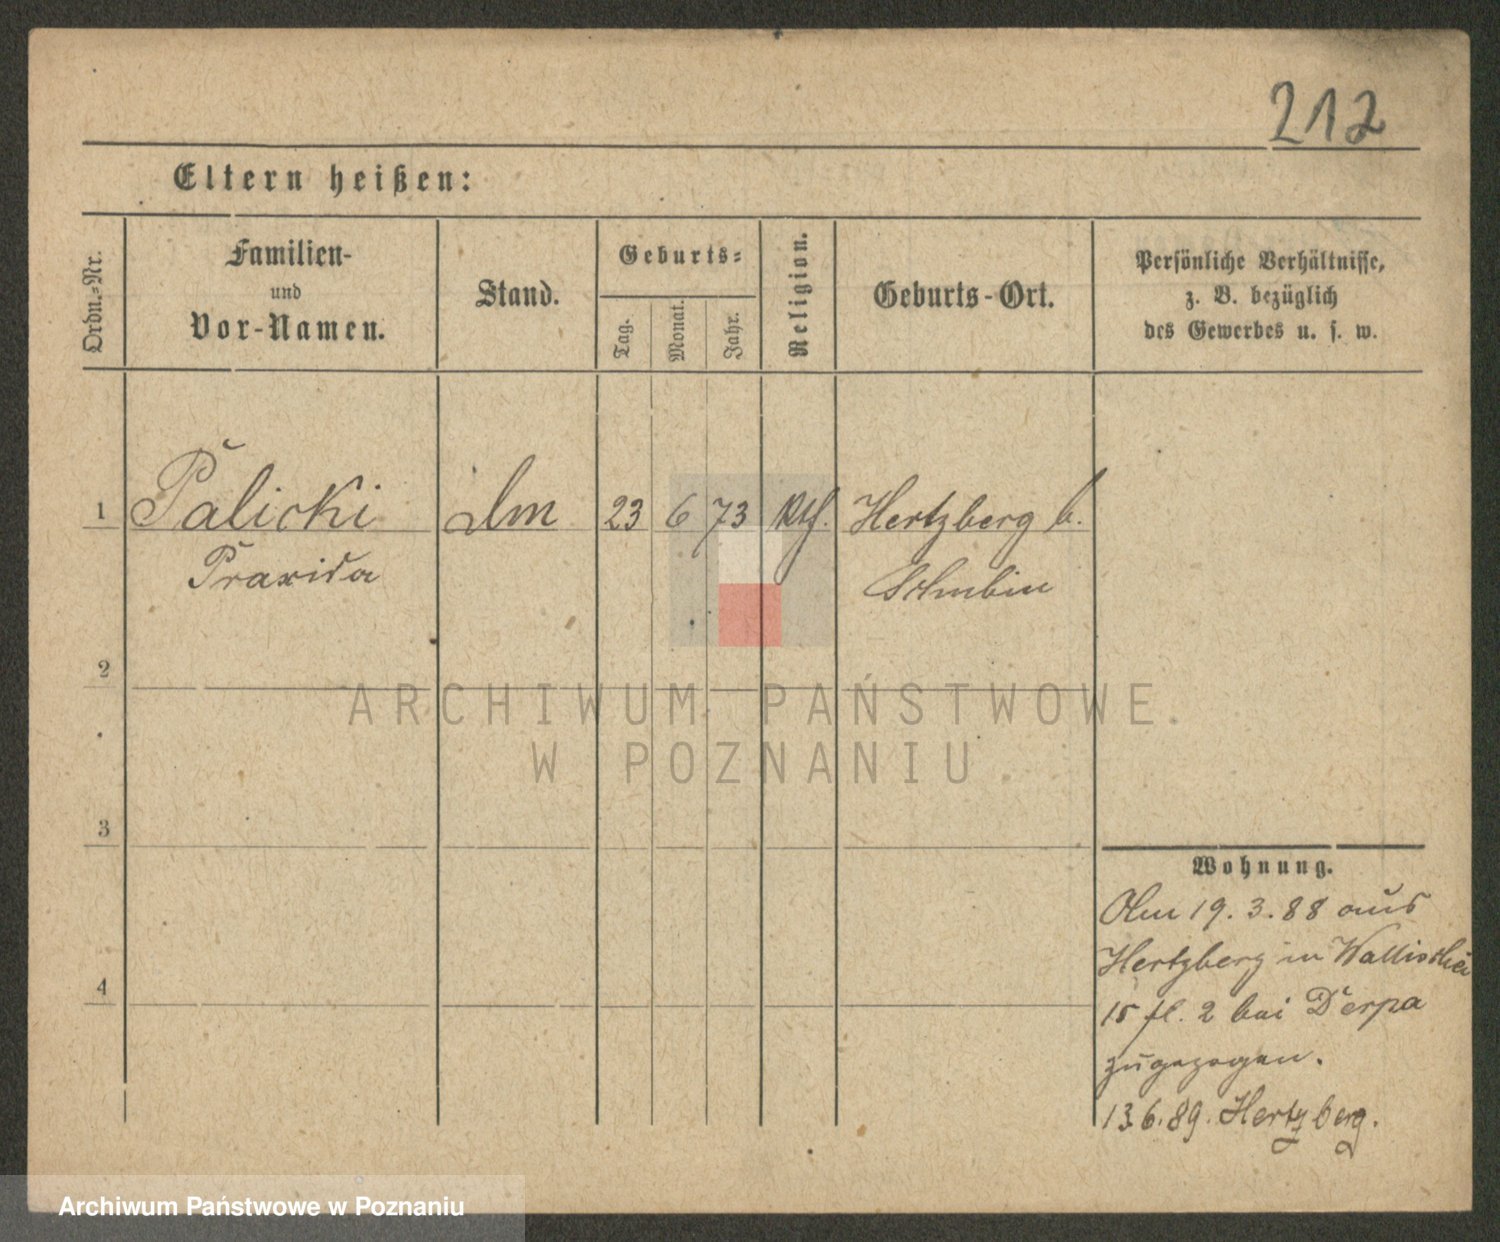 212
Eltern heißen:
Ordn.-Nr.
Familien-
und
Vor-Namen.
Stand.
Geburts-
Tag.
Monat.
Jahr.
Religion.
Geburts-Ort.
Persönliche Verhältnisse,
z. B. bezüglich
des Gewerbes u. s. w.
1 Palicki 23 6 73 kth. Hertzberg b.
Praxida Schubin
2
3
4
Wohnung.
Am 19. 3. 88 aus
Hertzberg in Wallischei
15 fl. 2 bei Derpa
zugezogen.
13.6.89. Hertzberg.
ARCHIWUM PAŃSTWOWE
W POZNANIU
Archiwum Państwowe w Poznaniu